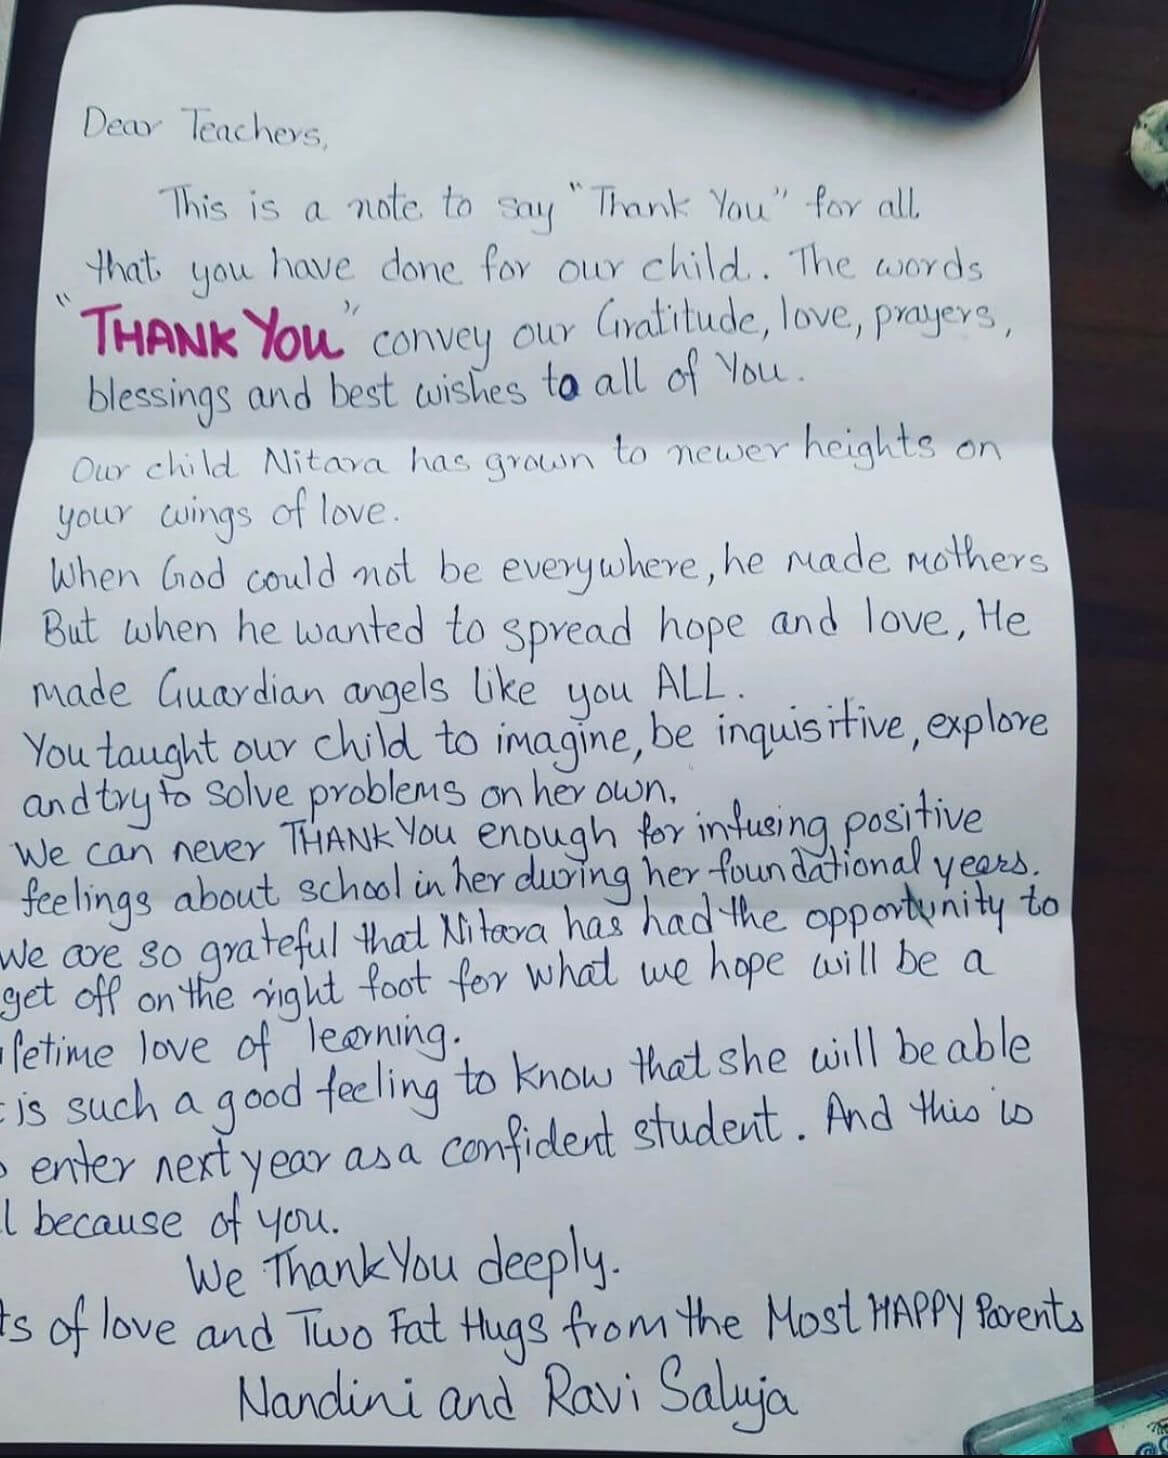 Dear Teachers,
This is a note to say "Thank You" for all
that you have done for our child. The words
"THANK YOU" convey our Gratitude, love, prayers,
blessings and best wishes to all of You.
Our child Nitara has grown to newer heights on
your wings of love.
When God could not be everywhere, he made mothers
But when he wanted to spread hope and love, He
made Guardian angels like you ALL.
You taught our child to imagine, be inquisitive, explore
and try to solve problems on her own.
We can never THANK YOU enough for infusing positive
feelings about school in her during her foundational years.
We are so grateful that Nitara has had the opportunity to
get off on the right foot for what we hope will be a
ifetime love of learning.
t is such a good feeling to know that she will be able
o enter next year as a confident student. And this is
l because of you.
We Thank You deeply.
ts of love and Two Fat Hugs from the Most HAPPY Parents
Nandini and Ravi Saluja